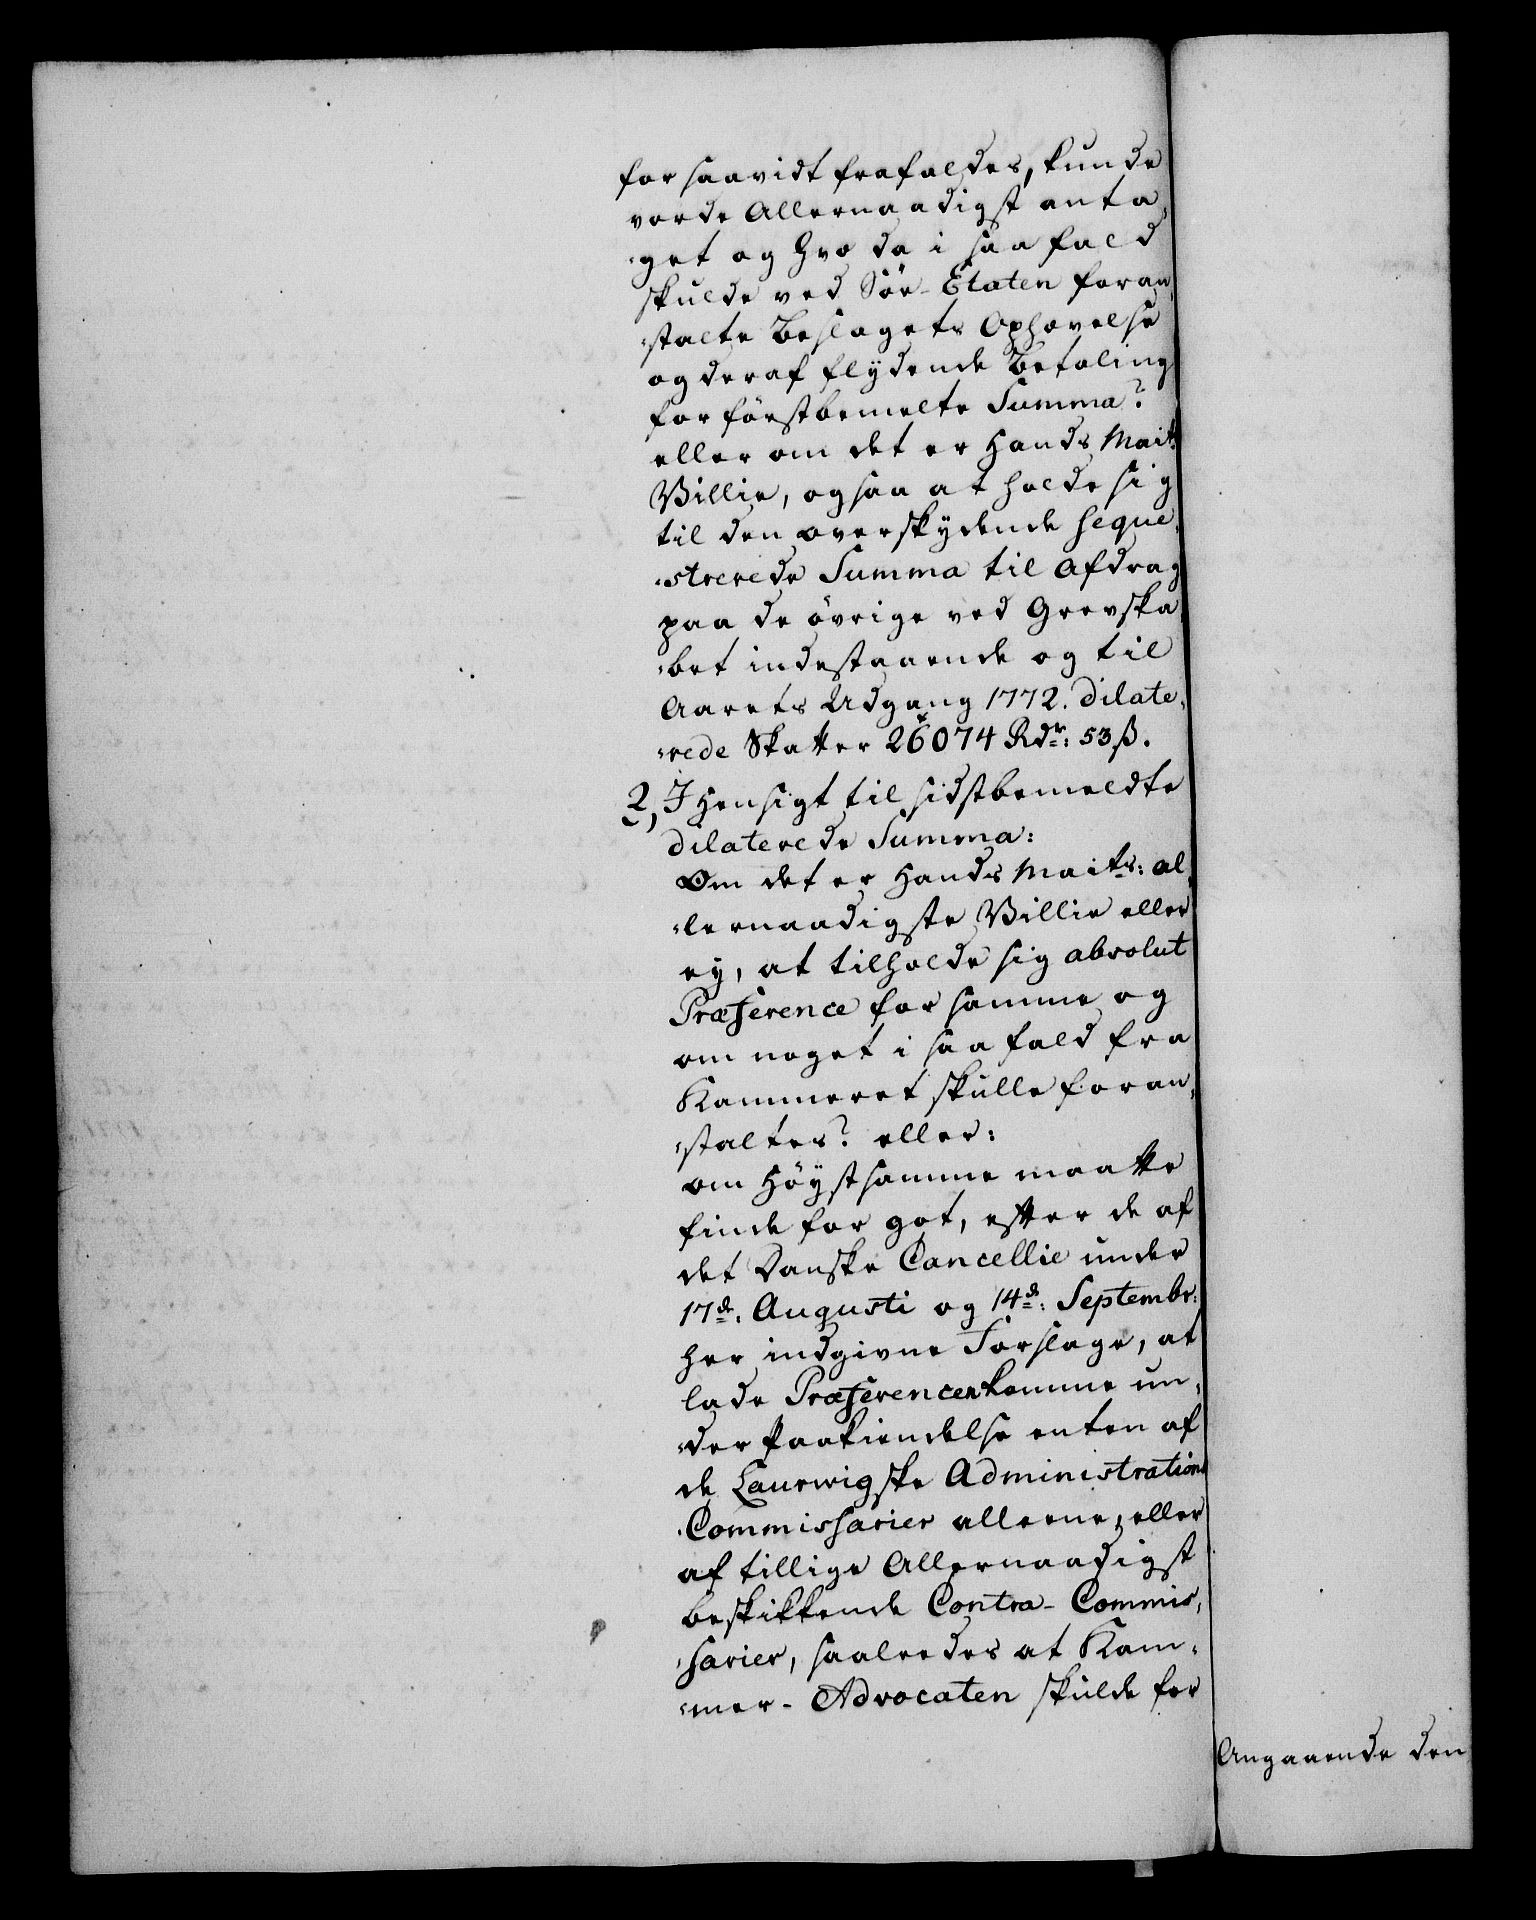 for saavidt frafaldes, kunde
vorde Allernaadigst anta,
„get og hvo da i saa fald
skulde ved Söe-Etaten foran,
„stalte Beslagets Ophævelse
og deraf flydende Betaling
for förstbemelte Summa?
eller om det er Hands Maits:
Villie, ogsaa at holde sig
til den overskydende seque,
„strerede Summa til Afdrag
paa de övrige ved Grevska,
„bet indestaaende og til
Aarets Udgang 1772. dilate,
„rede Skatter 26074 Rdr: 53 ß.
2, I Hensigt til sidstbemeldte
dilaterede Summa:
Om det er Hands Maits: al,
„lernaadigste Villie eller
ey, at tilholde sig absolut
Præference for samme og
om noget i saa fald fra
Kammeret skulle foran,
„staltes? eller:
om Höystsamme maatte
finde for got, efter de af
det Danske Cancellie under
17de: Augusti og 14de: Septembr:
her indgivne Forslage, at
lade Præferencen komme un,
„der Paakiendelse enten af
de Laurwigske Administrations
Commissarier alleene, eller
af tillige Allernaadigst
beskikkende Contra-Commis,
„sarier, saaledes at Kam,
„mer-Advocaten skulde for
Angaaende den